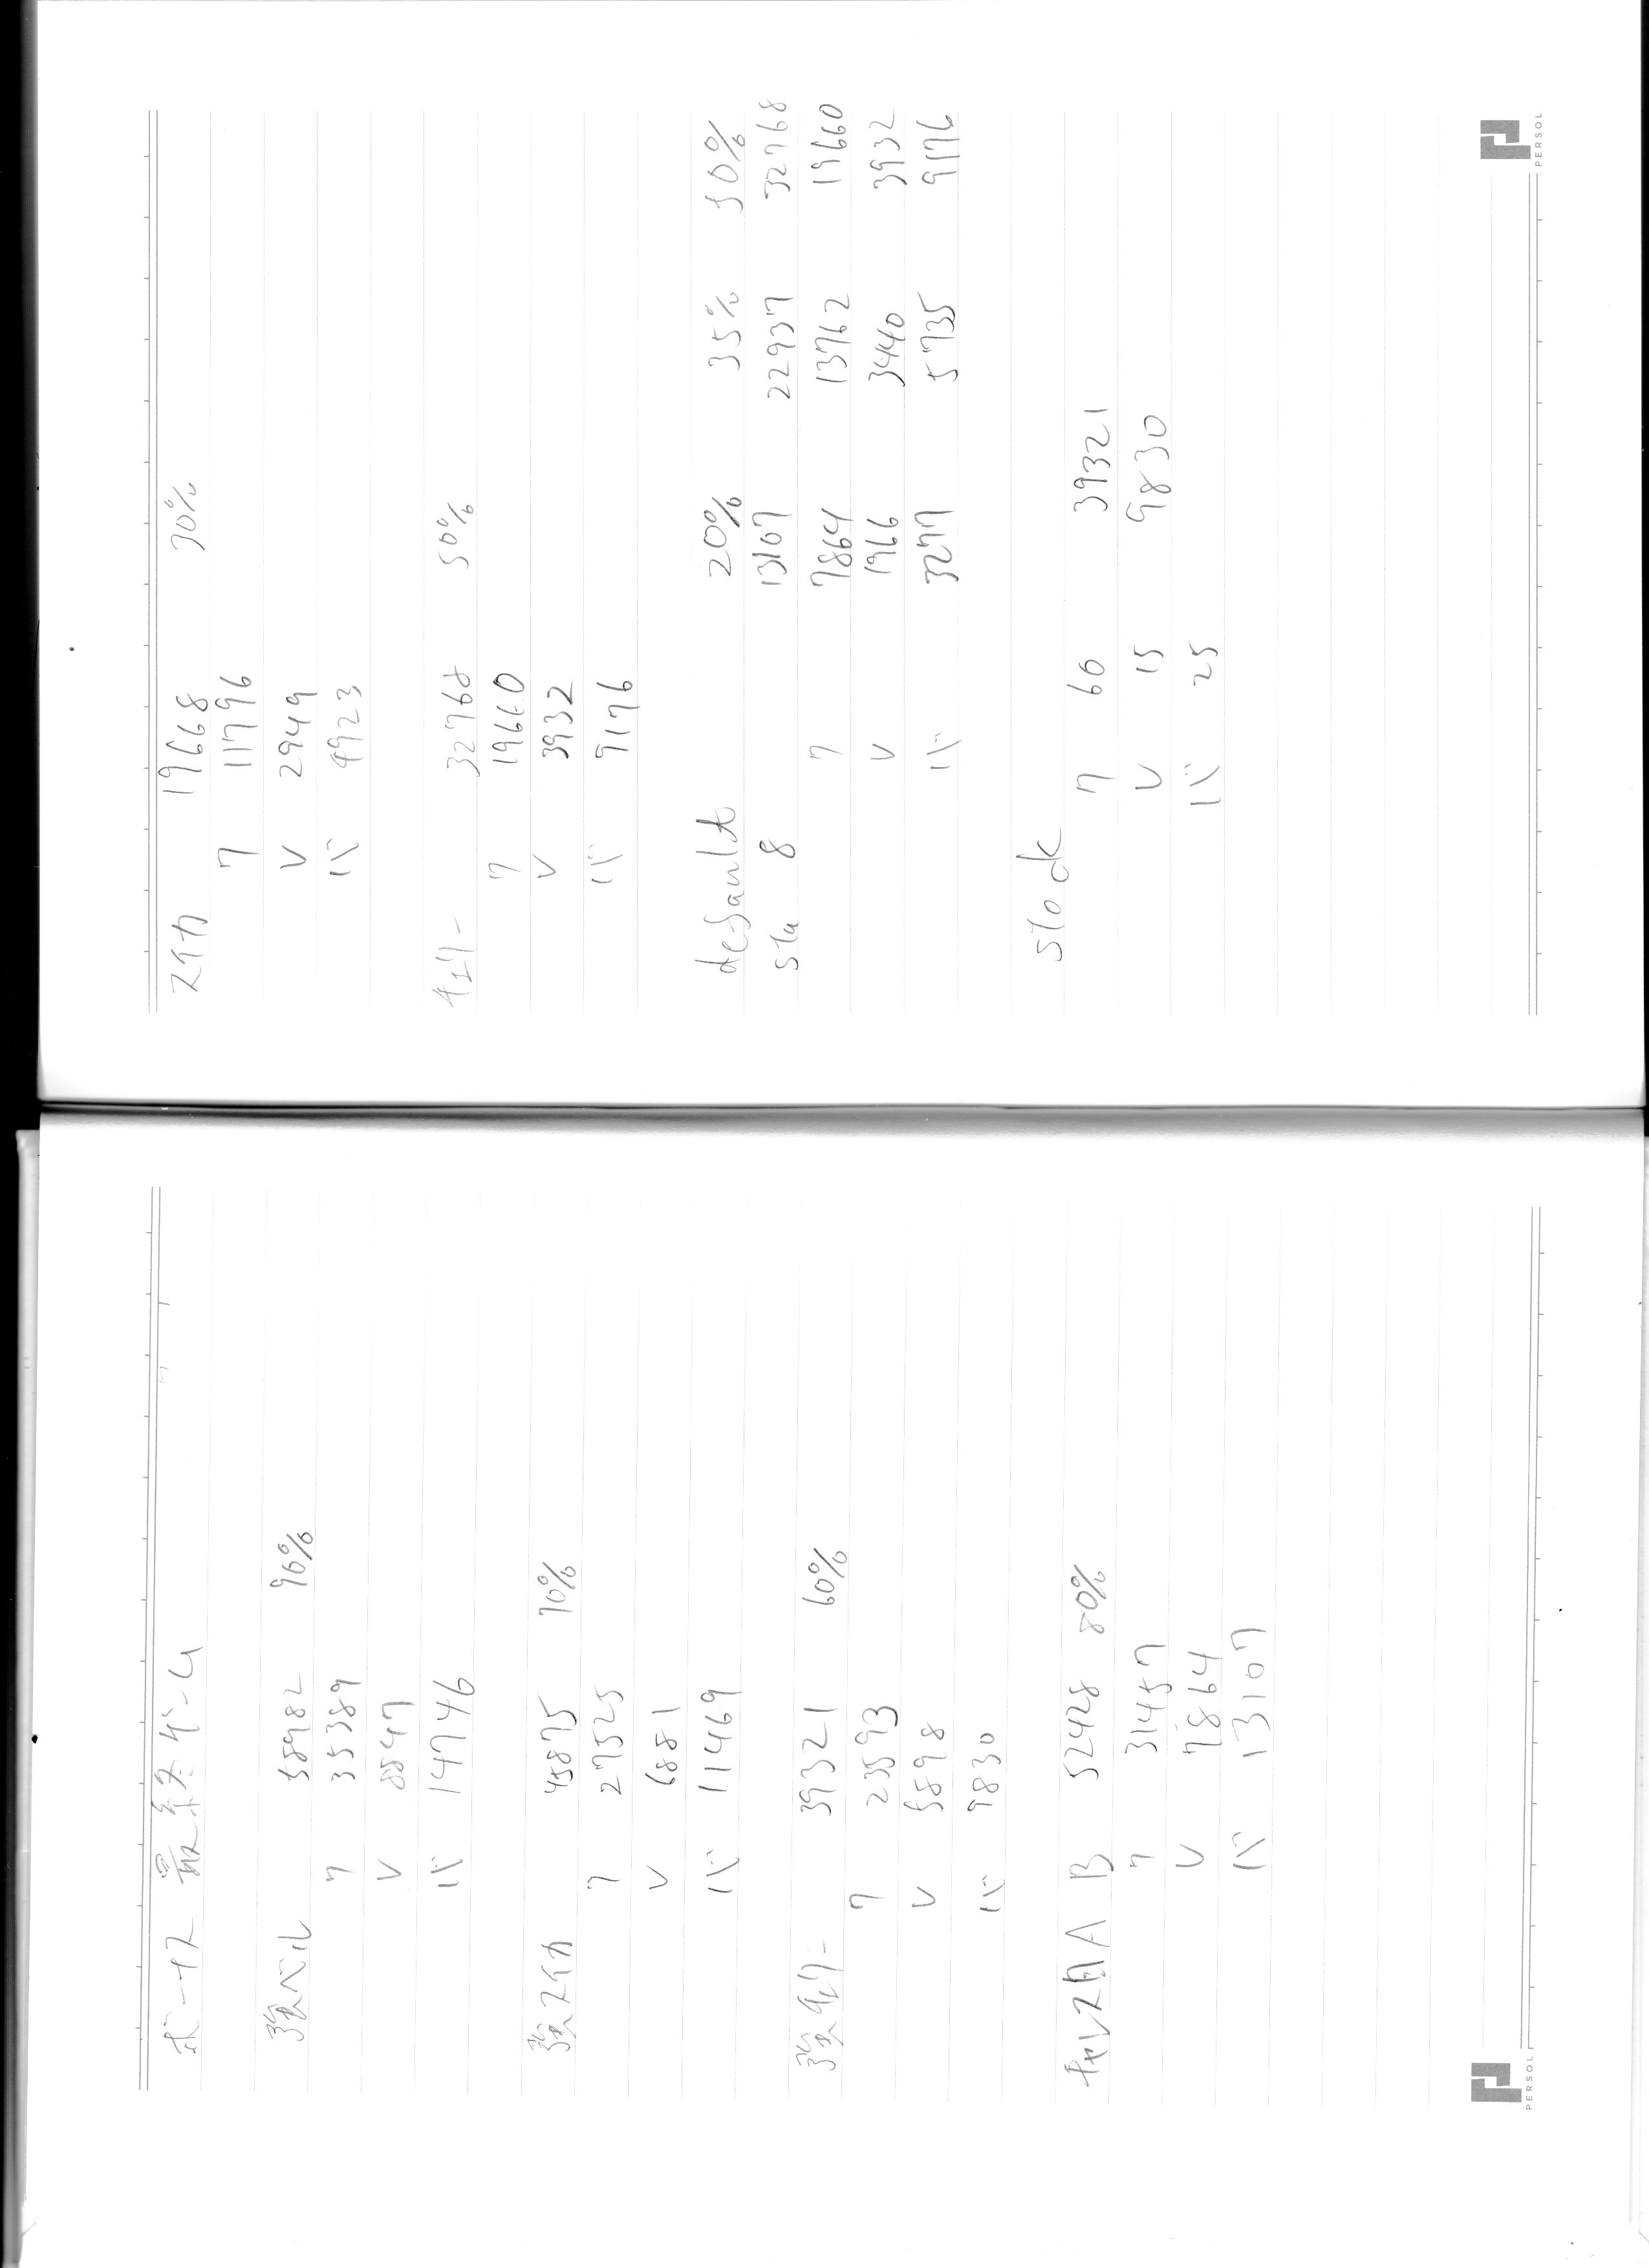 ボーナス 最終ゲーム
強ベル 58982 90%
7 35389
V 8847
バ 14746
強スイカ 45875 70%
7 27525
V 6881
バ 11469
強チェリー 39321 60%
7 23593
V 5898
バ 9830
チャンス目A B 52428 80%
7 31457
V 7864
バ 13107
PERSOL
スイカ 19668 30%
7 11796
V 2949
バ 4923
チェリー 32768 50%
7 19660
V 3932
バ 9176
default 20% 35% 50%
sta 8 13107 22937 32768
7 7864 13762 19660
V 1966 3440 3932
バ 3277 5735 9176
stock
7 60 39321
V 15 9830
バ 25
PERSOL